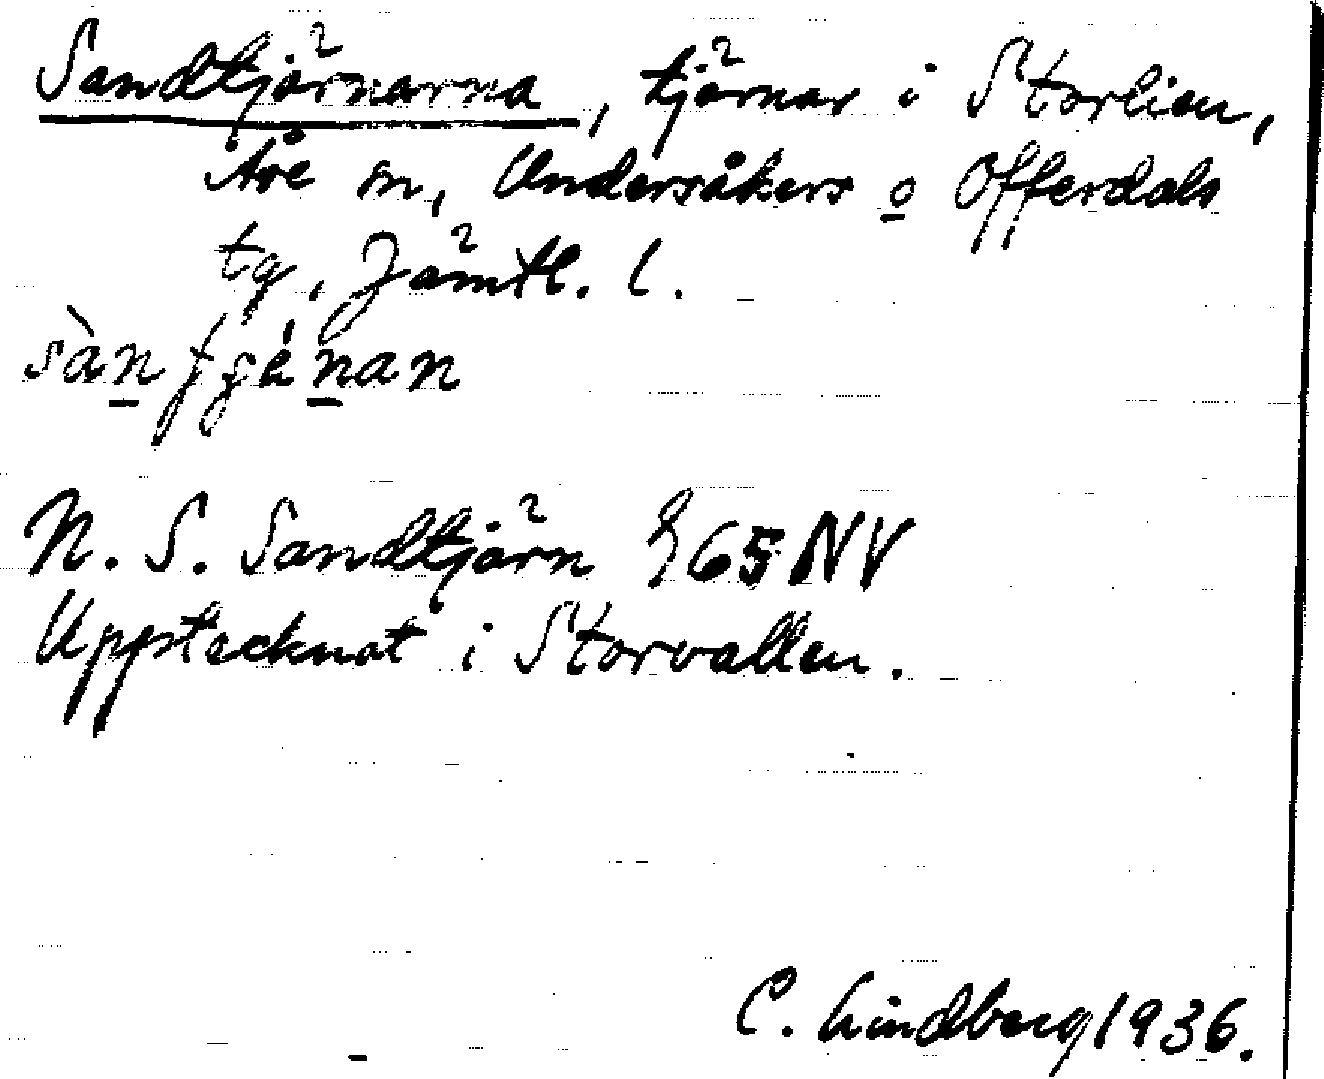 Sandtjärnarna, tjärnar i Storlien,
Åre sn, Undersåkers o Offerdals
tg, Jämtl. l.
N. S. Sandtjärn 65 NV
Upptecknat i Storvallen.
C. Lindberg 1936.